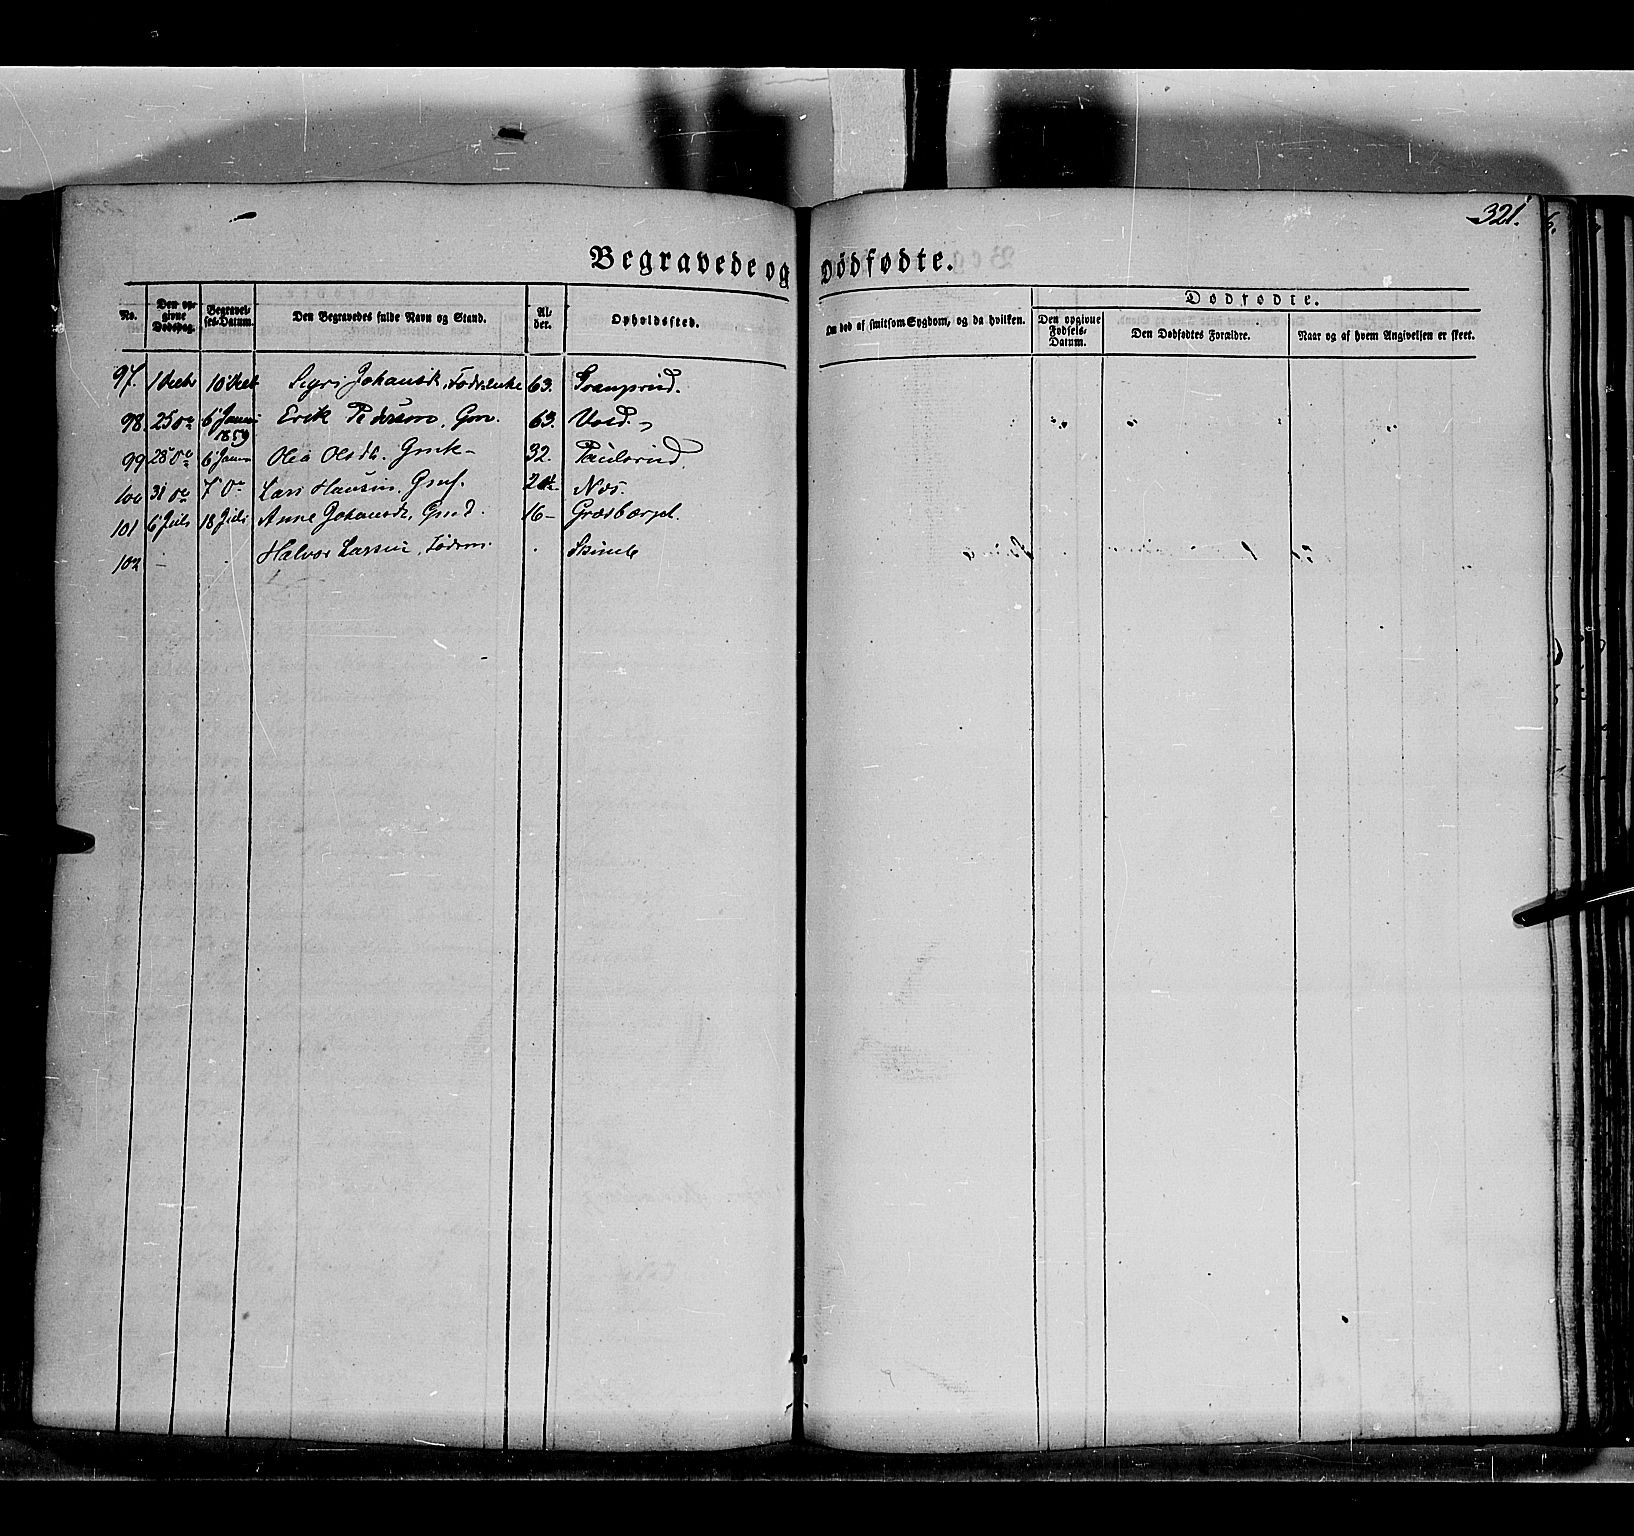 321.
Begravede og Dødfødte.
No. Den opgivne Dødsdag. Begravelses-Datum. Den Begravedes fulde Navn og Stand. Alder. Opholdssted. Om død af smitsom Sygdom, og da hvilken. Dødfødte.
Den opgivne Fødsels-Datum. Den Dødfødtes Forældre. Naar og af hvem Angivelsen er skeet.
97. 10 Johansd. 63.
98. 25 do 6 Januar 1859 Erik Pedersen, Gm. 63. Vold.
99 28 do 6 Januar Olea Olsdt. Gmk 32. Paulsrud.
100 31 do 7 do Lars Hansen. Gms. Næs.
101 6 Juli 18 Juli Anne Johansdt. Gmd. 16
102 Halvor Larsen,